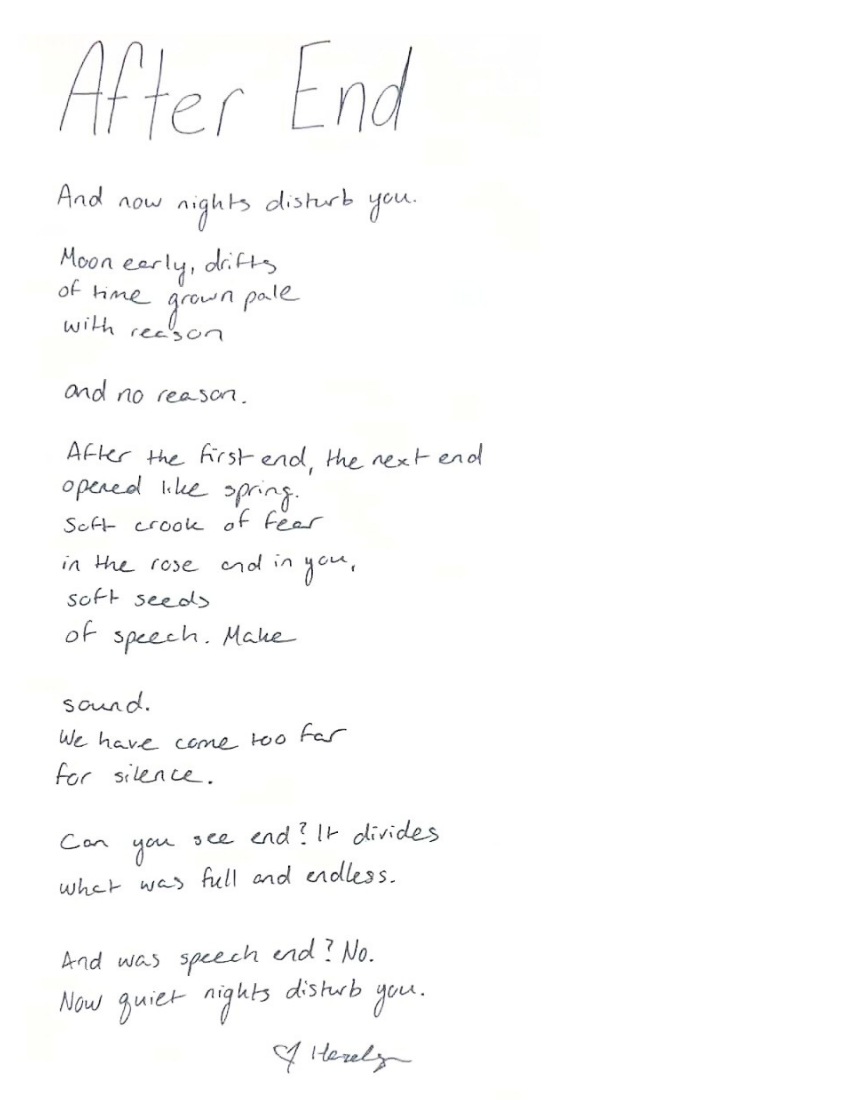 After End
And now nights disturb you.
Moon early, drifts
of time grown pale
with reason
and no reason.
After the first end, the next end
opened like spring.
Soft crook of fear
in the rose and in you,
soft seeds
of speech. Make
sound.
We have come too far
for silence.
Can you see end? It divides
what was full and endless.
And was speech end? No.
Now quiet nights disturb you.
♡